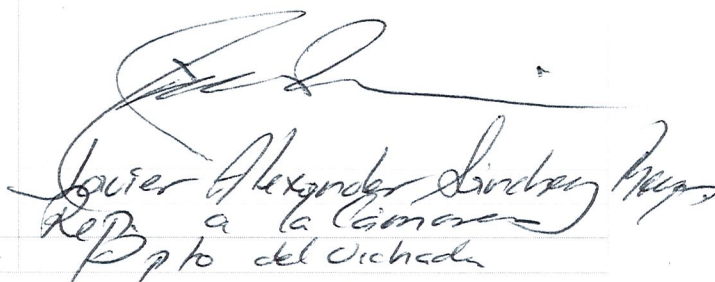 Javier Alexander Sánchez Reyes
Rep. a la Cámara
Dpto del Vichada